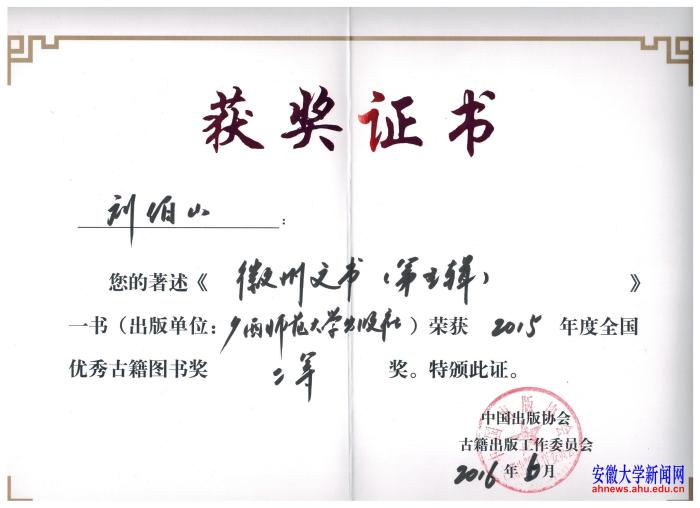 获奖证书
刘伯山：
您的著述《徽州文书（第五辑）》
一书（出版单位：广西师范大学出版社）荣获 2015 年度全国
优秀古籍图书奖 二等 奖。特颁此证。
中国出版协会
古籍出版工作委员会
2016年6月
安徽大学新闻网
ahnews.ahu.edu.cn